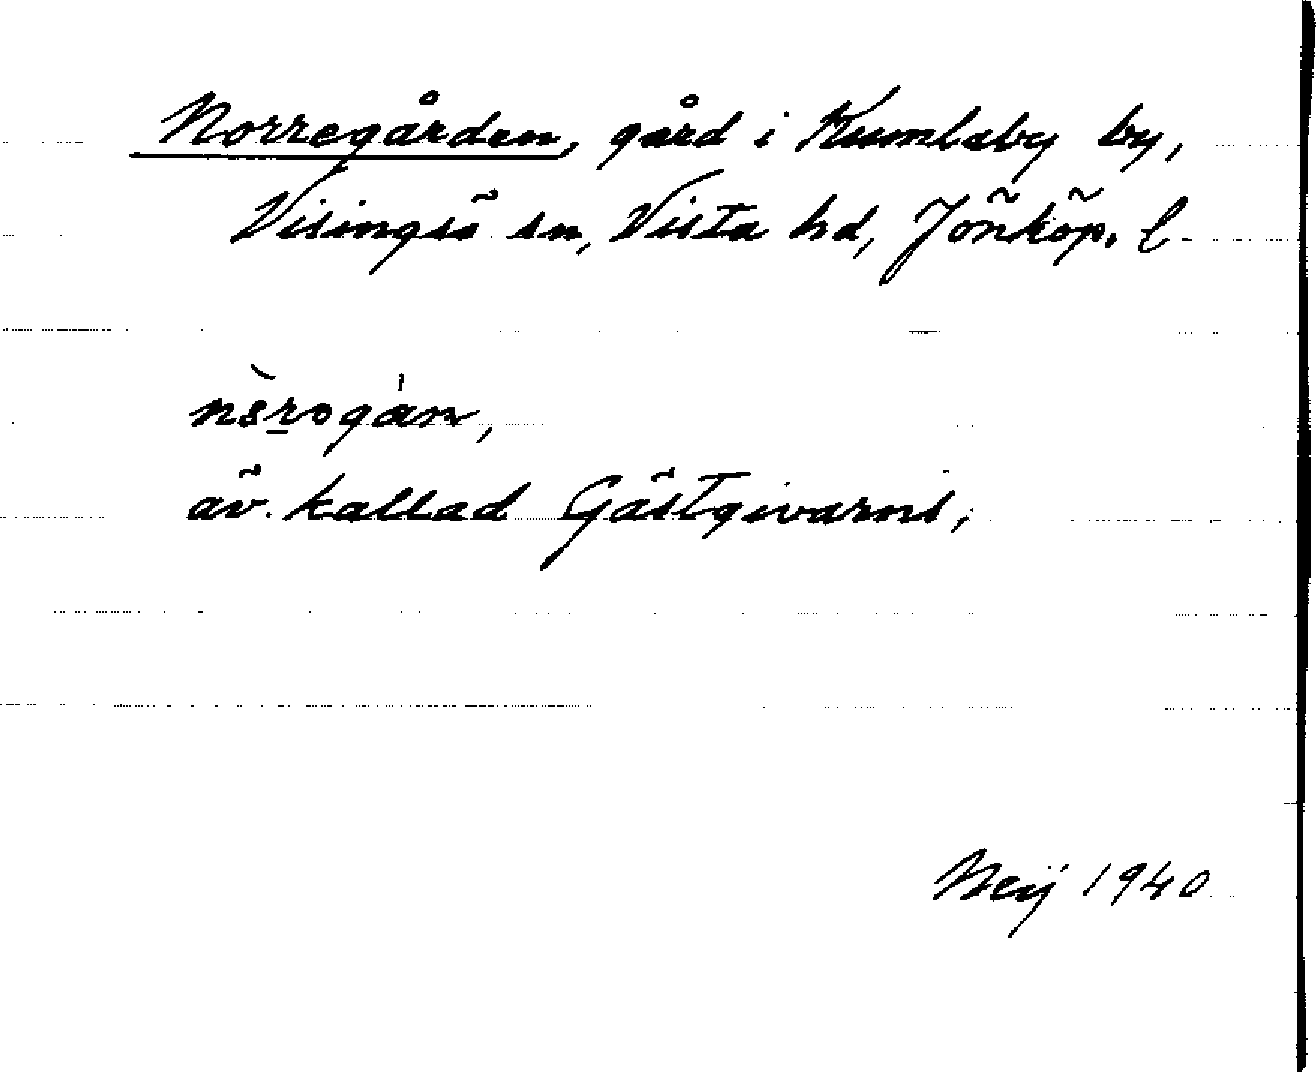 Norregården, gård i Kumlaby by,
Visingsö sn, Vista hd, Jönköp. l
av. kallad Gästgivarns,
1940